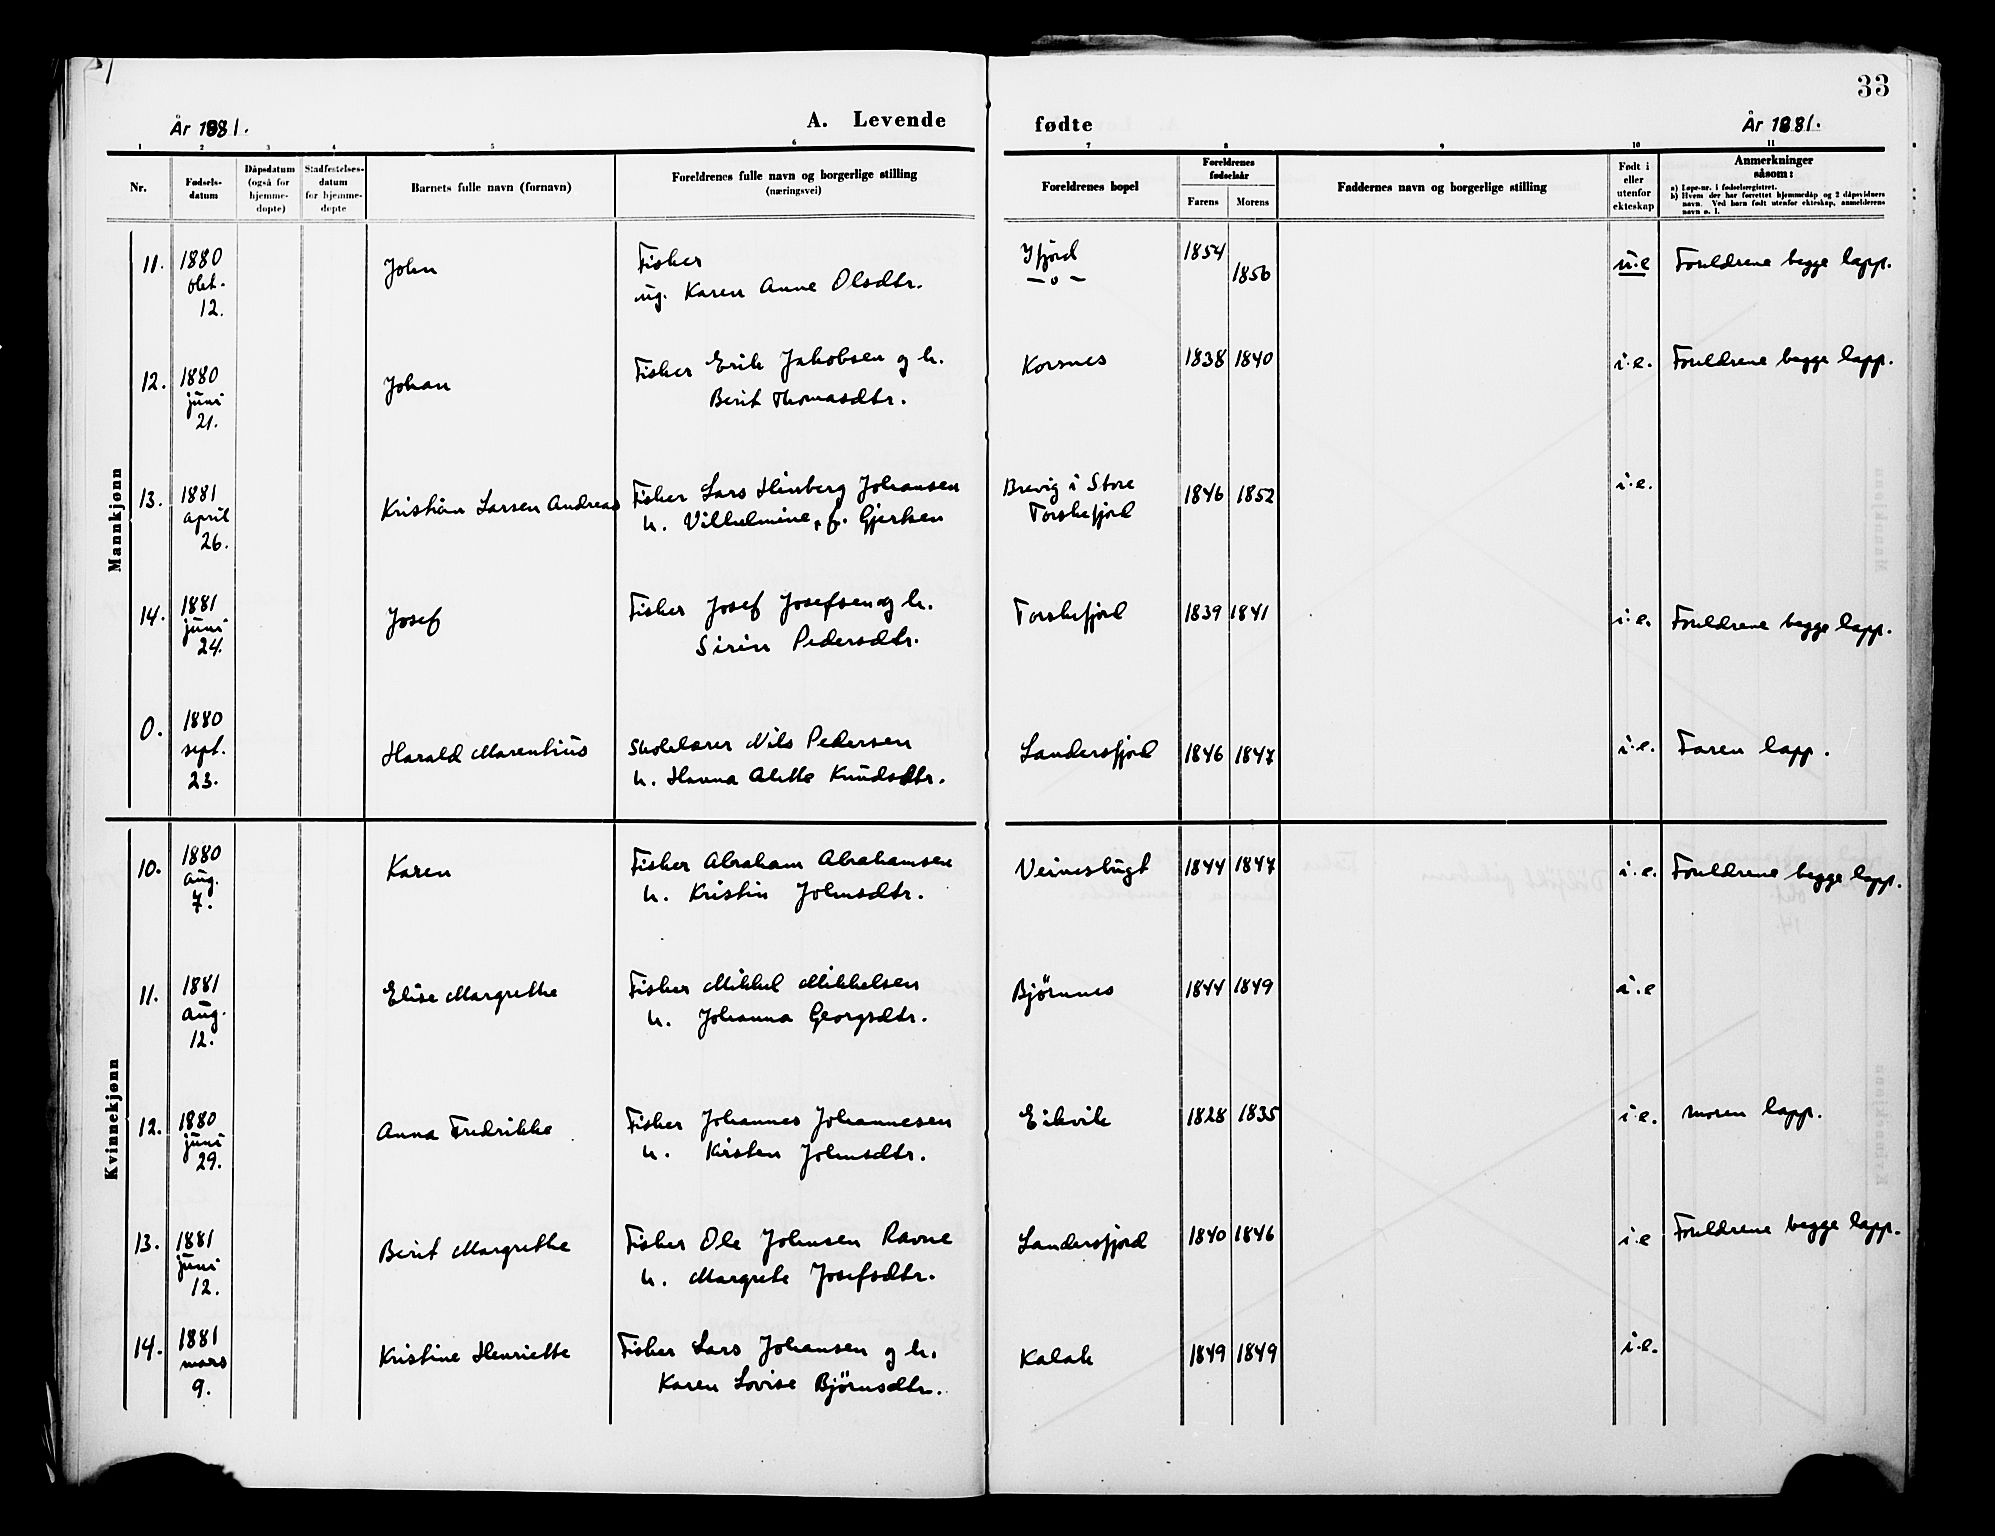 33
År 1881.
A. Levende
fødte
År 1881.
1 2 3 4 5 6 7 8 9 10 11
Nr.
Fødsels-
datum
Dåpsdatum
(også for
hjemme-
døpte)
Stadfestelses-
datum
for hjemme-
døpte
Barnets fulle navn (fornavn)
Foreldrenes fulle navn og borgerlige stilling
(næringsvei)
Foreldrenes bopel
Foreldrenes
fødselsår
Farens Morens
Faddernes navn og borgerlige stilling
Født i
eller
utenfor
ekteskap
Anmerkninger
såsom:
a) Løpe-nr. i fødselsregistret.
b) Hvem der har forrettet hjemmedåp og 2 dåpsvidners
navn. Ved barn født utenfor ekteskap, anmelderens
navn o. l.
Mannkjønn
11. 1880
okt.
12.
John
Fisker
ug. Karen Anne Olsdtr.
Ifjord
— o —
1854
1856
u.e
Foreldrene begge lapp.
12. 1880
juni
21.
Johan
Fisker Erik Jakobsen og h.
Berit Thomasdtr.
Korsnes
1838 1840
i.e.
Foreldrene begge lapp.
13. 1881
april
26.
Kristian Larsen Andreas
Fisker Lars Hinberg Johansen
h. Vilhelmine, f. Gjertsen
Brevig i Store
Torskefjord
1846 1852
i.e.
14. 1881
juni
24.
Josef
Fisker Josef Josefsen og h.
Sirin Pedersdtr.
Torskefjord
1839 1841
i.e.
Foreldrene begge lapp.
0. 1880
sept.
23.
Harald Marentius
Skolelærer Nils Pedersen
h. Hanna Alette Knudsdtr.
Landersfjord
1846 1847
i.e.
Faren lapp.
Kvinnekjønn
10. 1880
aug.
7.
Karen
Fisker Abraham Abrahamsen
h. Kristin Johnsdtr.
Veinesbugt
1844 1847
i.e.
Foreldrene begge lapp.
11. 1881
aug.
12.
Elise Margrethe
Fisker Mikkel Mikkelsen
h. Johanna Georgsdtr.
Bjørnnes
1844 1849
i.e
12. 1880
juni
29.
Anna Fredrikke
Fisker Johannes Johannesen
h. Kirsten Johnsdtr.
Eikvik
1828 1835
i.e.
moren lapp.
13. 1881
juni
12.
Berit Margrethe
Fisker Ole Johnsen Ravne
h. Margrete Josefsdtr.
Landersfjord
1840 1846
i.e
Foreldrene begge lapp.
14. 1881
mars
9.
Kristine Henriette
Fisker Lars Johansen og h.
Karen Lovise Bjørnsdtr.
Kalak
1849 1849
i.e.